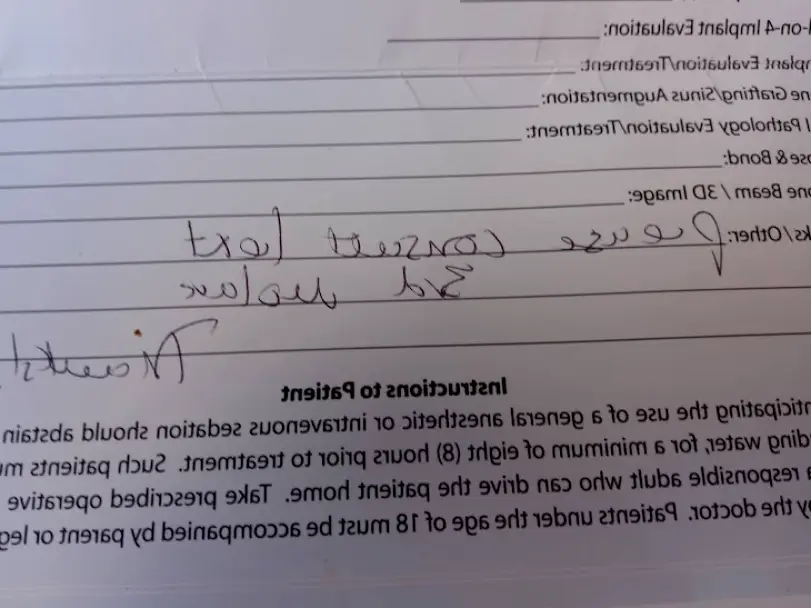 l-on-4 Implant Evaluation:
mplant Evaluation/Treatment:
ne Grafting/Sinus Augmentation:
l Pathology Evaluation/Treatment:
ose & Bond:
one Beam / 3D Image:
ks/Other: consult
3rd molars
Instructions to Patient
nticipating the use of a general anesthetic or intravenous sedation should abstain
ding water, for a minimum of eight (8) hours prior to treatment. Such patients m
a responsible adult who can drive the patient home. Take prescribed operative
by the doctor. Patients under the age of 18 must be accompanied by parent or leg